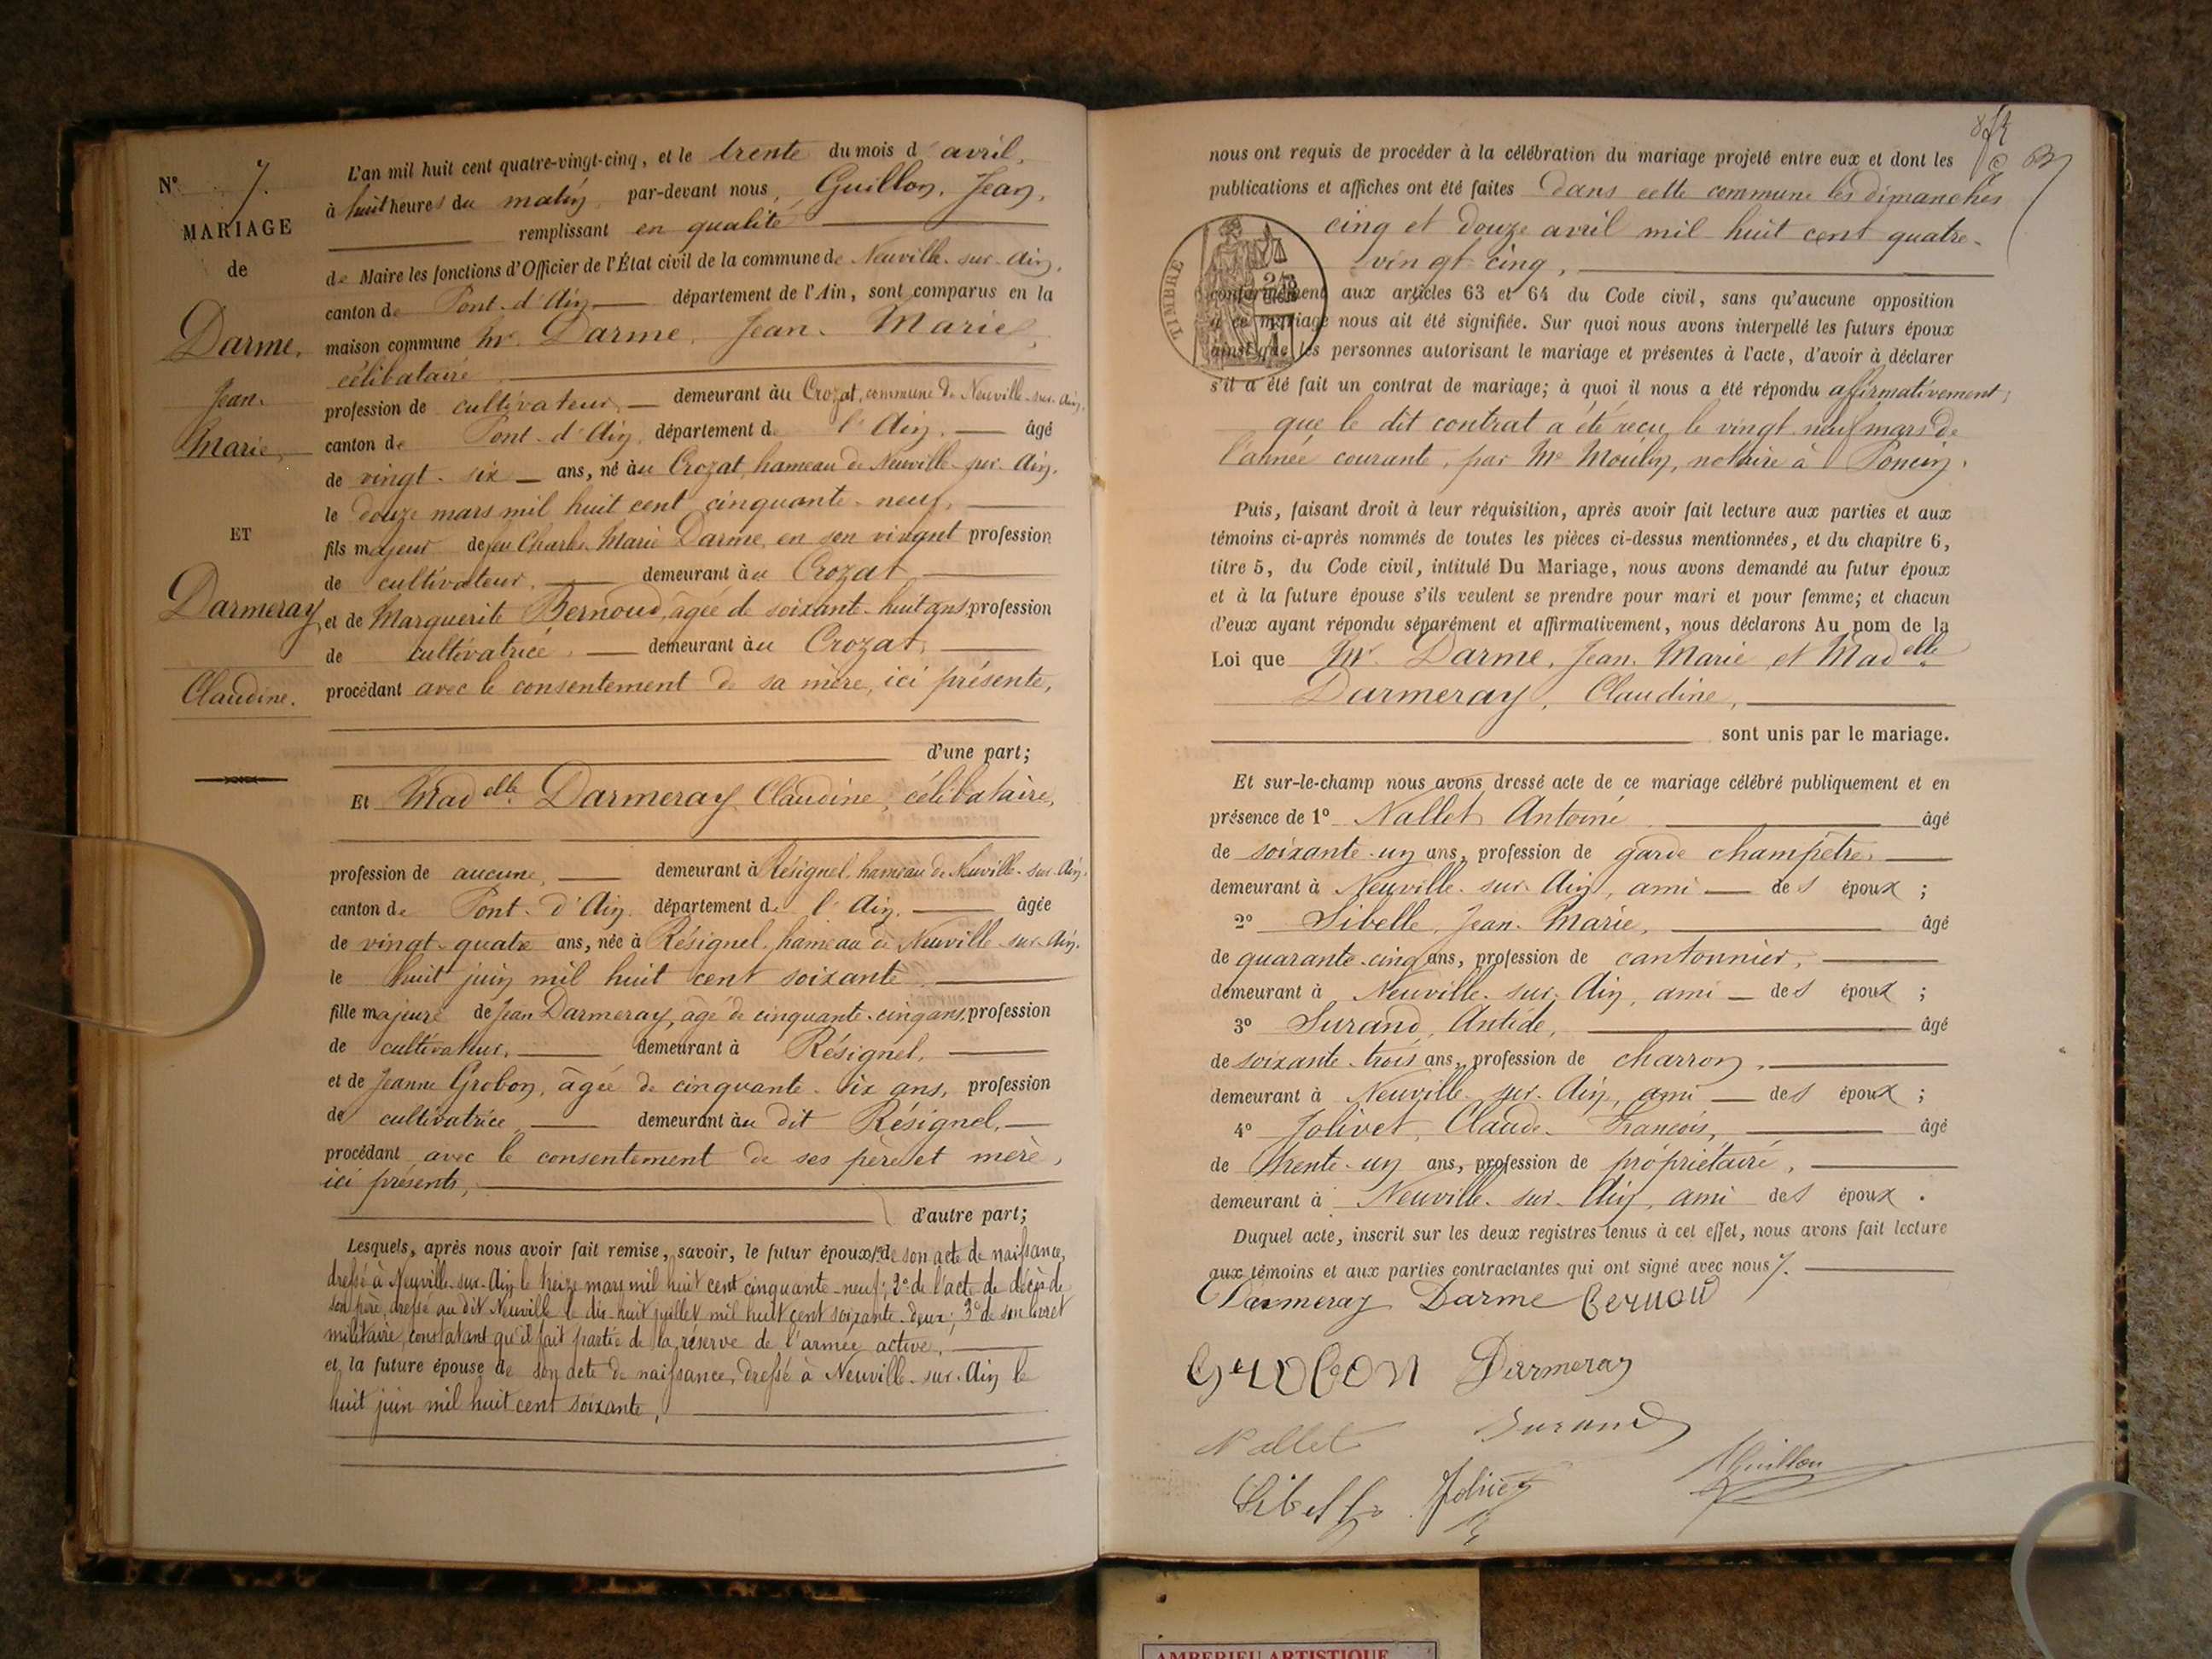 N° 7.
MARIAGE
de
Darme,
Jean-
Marie,
ET
Darmeray,
Claudine.
L'an mil huit cent quatre-vingt-cinq, et le trente du mois d'avril,
à huit heures du matin, par-devant nous, Guillon, Jean,
remplissant en qualité
de Maire les fonctions d'Officier de l'État civil de la commune de Neuville-sur-Ain,
canton de Pont-d'Ain département de l'Ain, sont comparus en la
maison commune Mr Darme, Jean-Marie,
célibataire
profession de cultivateur, demeurant au Crozat, commune de Neuville-sur-Ain,
canton de Pont-d'Ain, département de l'Ain. âgé
de vingt-six ans, né au Crozat, hameau de Neuville-sur-Ain,
le douze mars mil huit cent cinquante-neuf,
fils majeur de feu Charles Marie Darme, en son vivant profession
de cultivateur, demeurant au Crozat
et de Marguerite Bernoud, âgée de soixante-huit ans, profession
de cultivatrice, demeurant au Crozat,
procédant avec le consentement de sa mère, ici présente,
d'une part;
Et Madelle Darmeray, Claudine, célibataire,
profession de aucune, demeurant à Résignel, hameau de Neuville-sur-Ain,
canton de Pont-d'Ain, département de l'Ain, âgée
de vingt-quatre ans, née à Résignel, hameau de Neuville-sur-Ain,
le huit juin mil huit cent soixante
fille majeure de Jean Darmeray, âgé de cinquante-cinq ans, profession
de cultivateur, demeurant à Résignel,
et de Jeanne Grobon, âgée de cinquante-six ans, profession
de cultivatrice, demeurant au dit Résignel,
procédant avec le consentement de ses père et mère,
ici présents,
d'autre part;
Lesquels, après nous avoir fait remise, savoir, le futur époux, 1° de son acte de naissance,
dressé à Neuville-sur-Ain le treize mars mil huit cent cinquante-neuf; 2° de l'acte de décès de
son père, dressé au dit Neuville le dix-huit juillet mil huit cent soixante-deux; 3° de son livret
militaire, constatant qu'il fait partie de la réserve de l'armée active,
et la future épouse de son acte de naissance, dressé à Neuville-sur-Ain le
huit juin mil huit cent soixante,
nous ont requis de procéder à la célébration du mariage projeté entre eux et dont les
publications et affiches ont été faites dans cette commune les dimanches
cinq et douze avril mil huit cent quatre-
vingt-cinq,
TIMBRE
conformément aux articles 63 et 64 du Code civil, sans qu'aucune opposition
à ce mariage nous ait été signifiée. Sur quoi nous avons interpellé les futurs époux
ainsi que les personnes autorisant le mariage et présentes à l'acte, d'avoir à déclarer
s'il a été fait un contrat de mariage; à quoi il nous a été répondu affirmativement,
que le dit contrat a été reçu le vingt-neuf mars de
l'année courante, par Me Moulin, notaire à Poncin.
Puis, faisant droit à leur réquisition, après avoir fait lecture aux parties et aux
témoins ci-après nommés de toutes les pièces ci-dessus mentionnées, et du chapitre 6,
titre 5, du Code civil, intitulé Du Mariage, nous avons demandé au futur époux
et à la future épouse s'ils veulent se prendre pour mari et pour femme; et chacun
d'eux ayant répondu séparément et affirmativement, nous déclarons Au nom de la
Loi que Mr Darme, Jean-Marie et Madelle
Darmeray, Claudine,
sont unis par le mariage.
Et sur-le-champ nous avons dressé acte de ce mariage célébré publiquement et en
présence de 1° Nallet Antoine âgé
de soixante-un ans, profession de garde champêtre,
demeurant à Neuville-sur-Ain, ami des époux;
2° Sibelle, Jean-Marie, âgé
de quarante-cinq ans, profession de cantonnier,
demeurant à Neuville-sur-Ain, ami des époux;
3° Surand, Antide, âgé
de soixante-trois ans, profession de charron,
demeurant à Neuville-sur-Ain, ami des époux;
4° Jolivet, Claude-François, âgé
de trente-un ans, profession de propriétaire,
demeurant à Neuville-sur-Ain, ami des époux.
Duquel acte, inscrit sur les deux registres tenus à cet effet, nous avons fait lecture
aux témoins et aux parties contractantes qui ont signé avec nous.
Darmeray Darme Bernoud
Grobon Darmeray
Nallet Surand
Sibelle Jolivet Guillon
AMBERIEU ARTISTIQUE